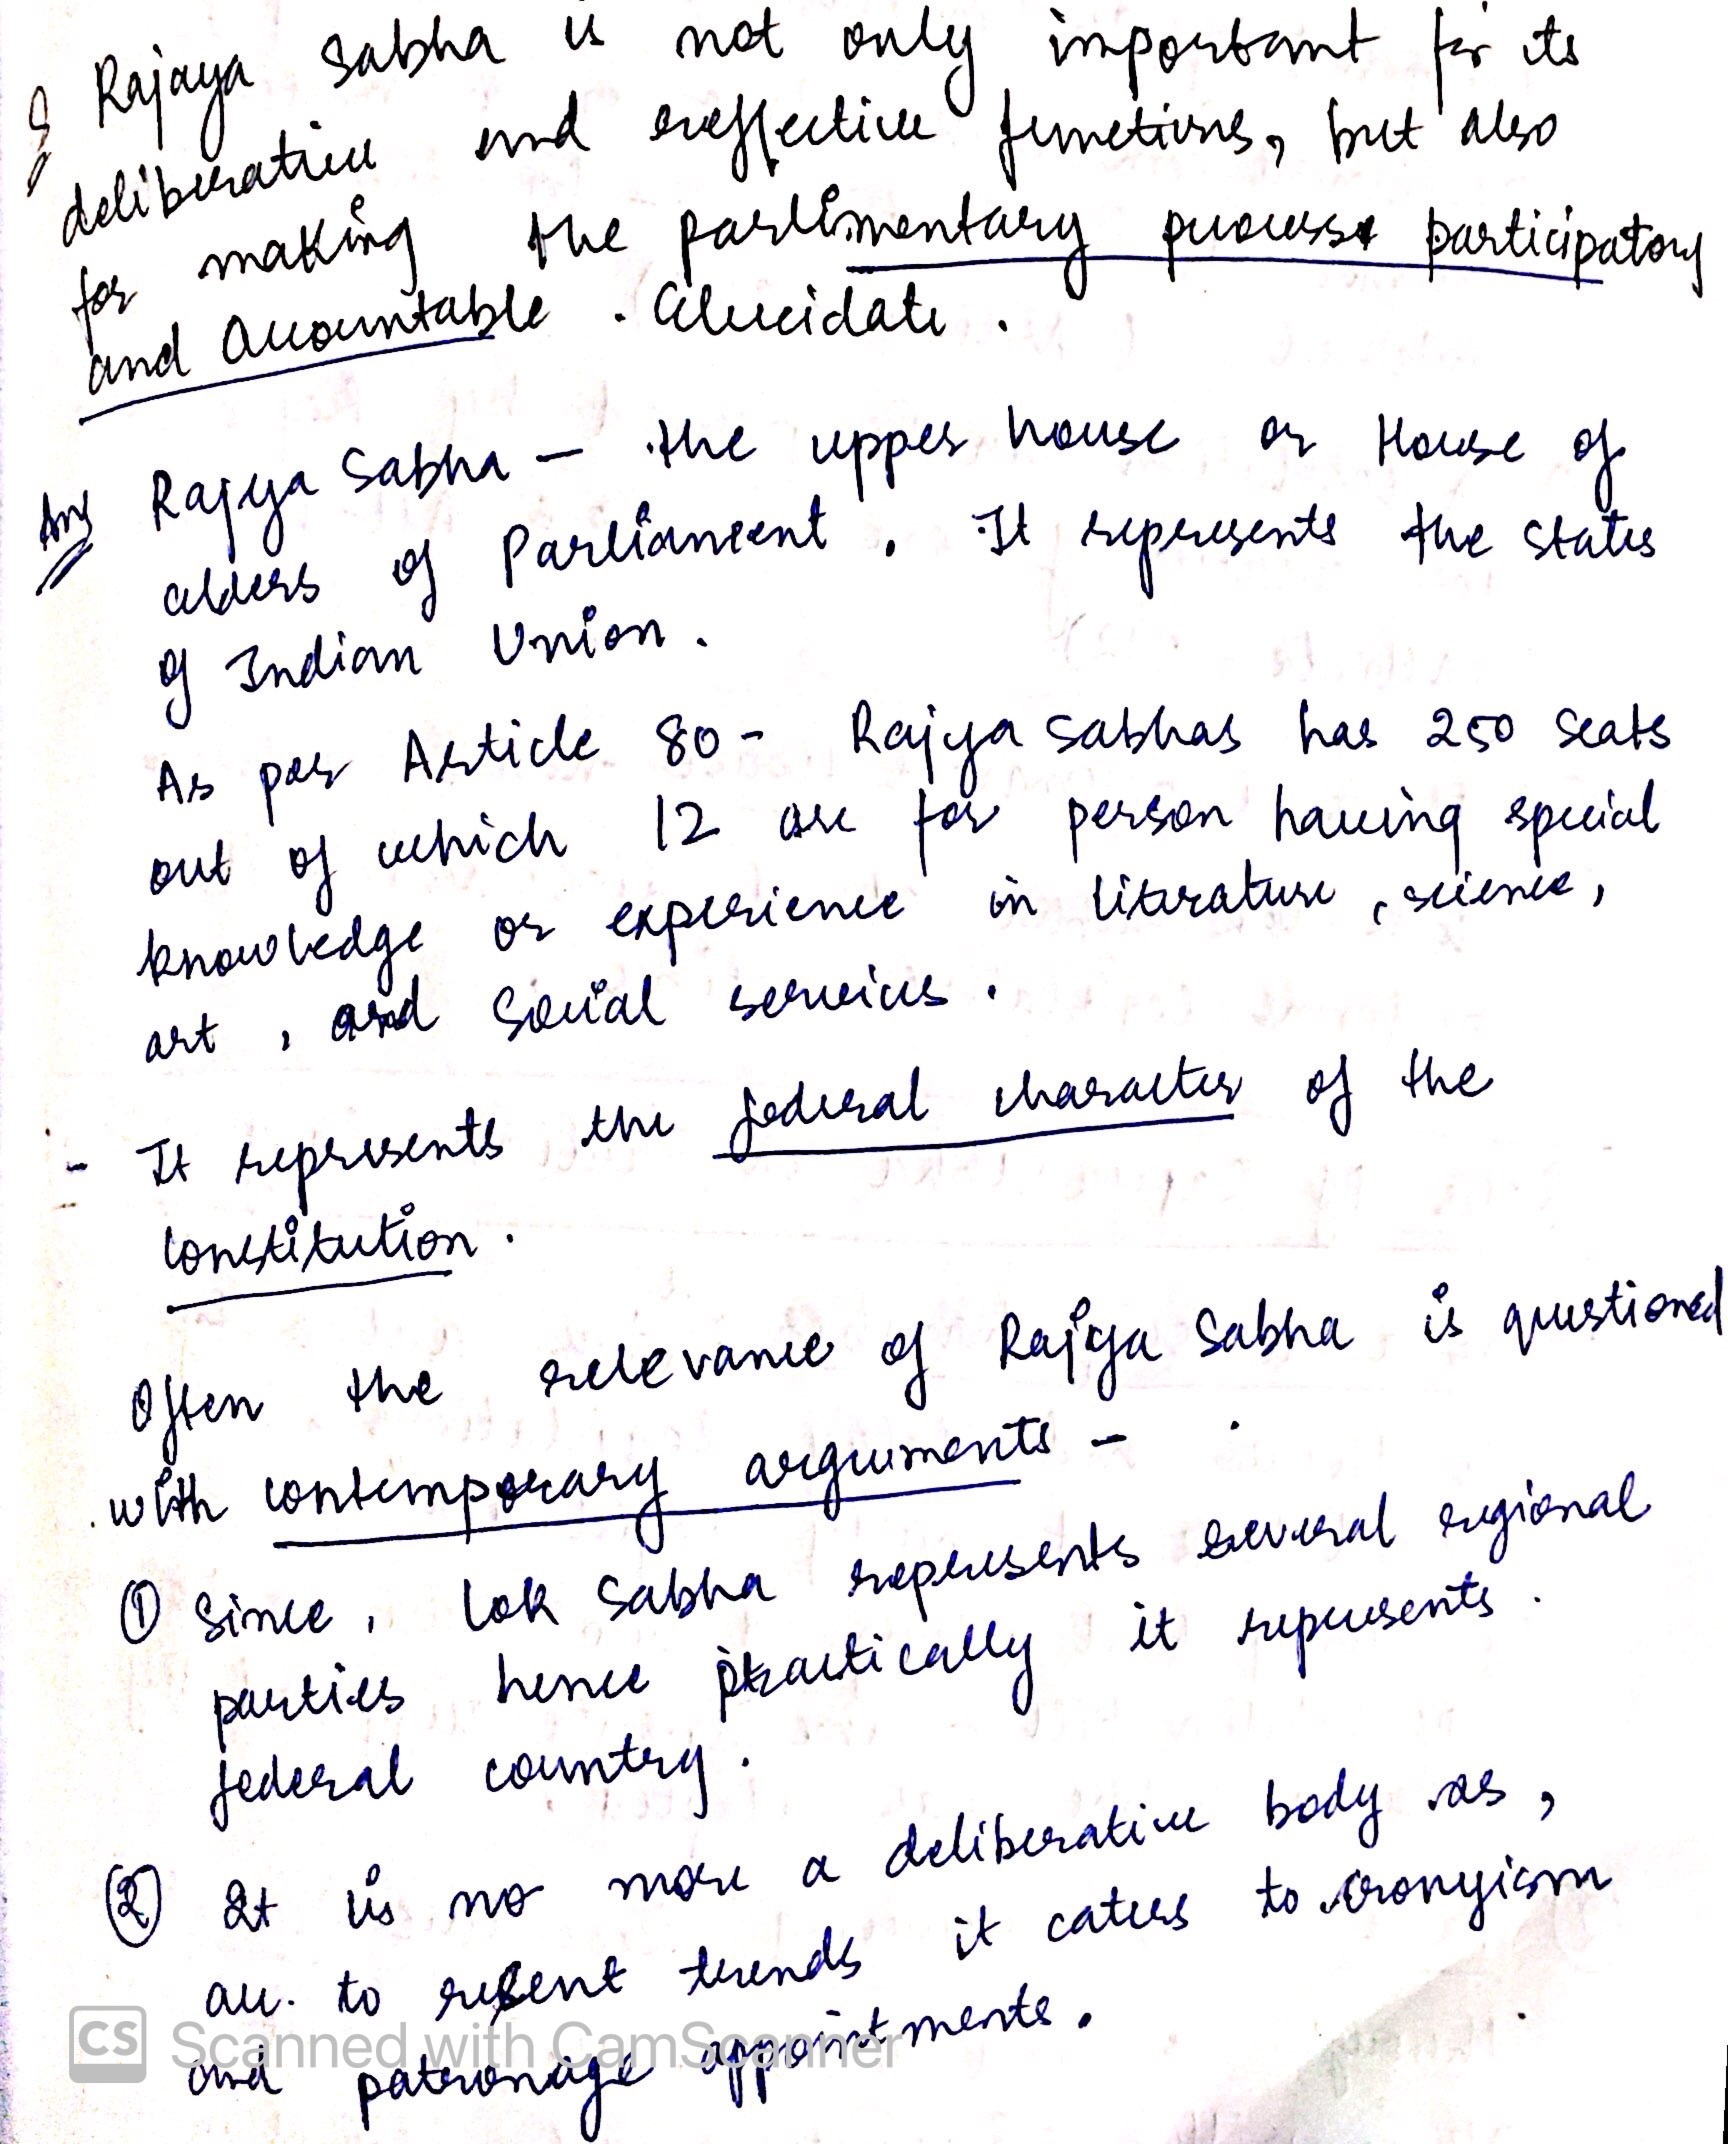 Q Rajaya Sabha is not only important for its
deliberative and reffective functions, but also
for making the parlimentary process participatory
and Accountable. Elucidate.
Ans Rajya Sabha - the upper house or House of
elders of Parliament. It represents the states
of Indian Union.
As per Article 80 - Rajya Sabhas has 250 seats
out of which 12 are for person having special
knowledge or experience in literature, science,
art, and Social services.
- It represents the federal character of the
Constitution.
Often the relevance of Rajya Sabha is questioned
with contemporary arguments -
① Since, Lok Sabha represents several regional
parties hence practically it represents
federal country.
② It is no more a deliberative body as,
acc. to resent trends it caters to cronyism
and patronage appointments.
CS Scanned with CamScanner